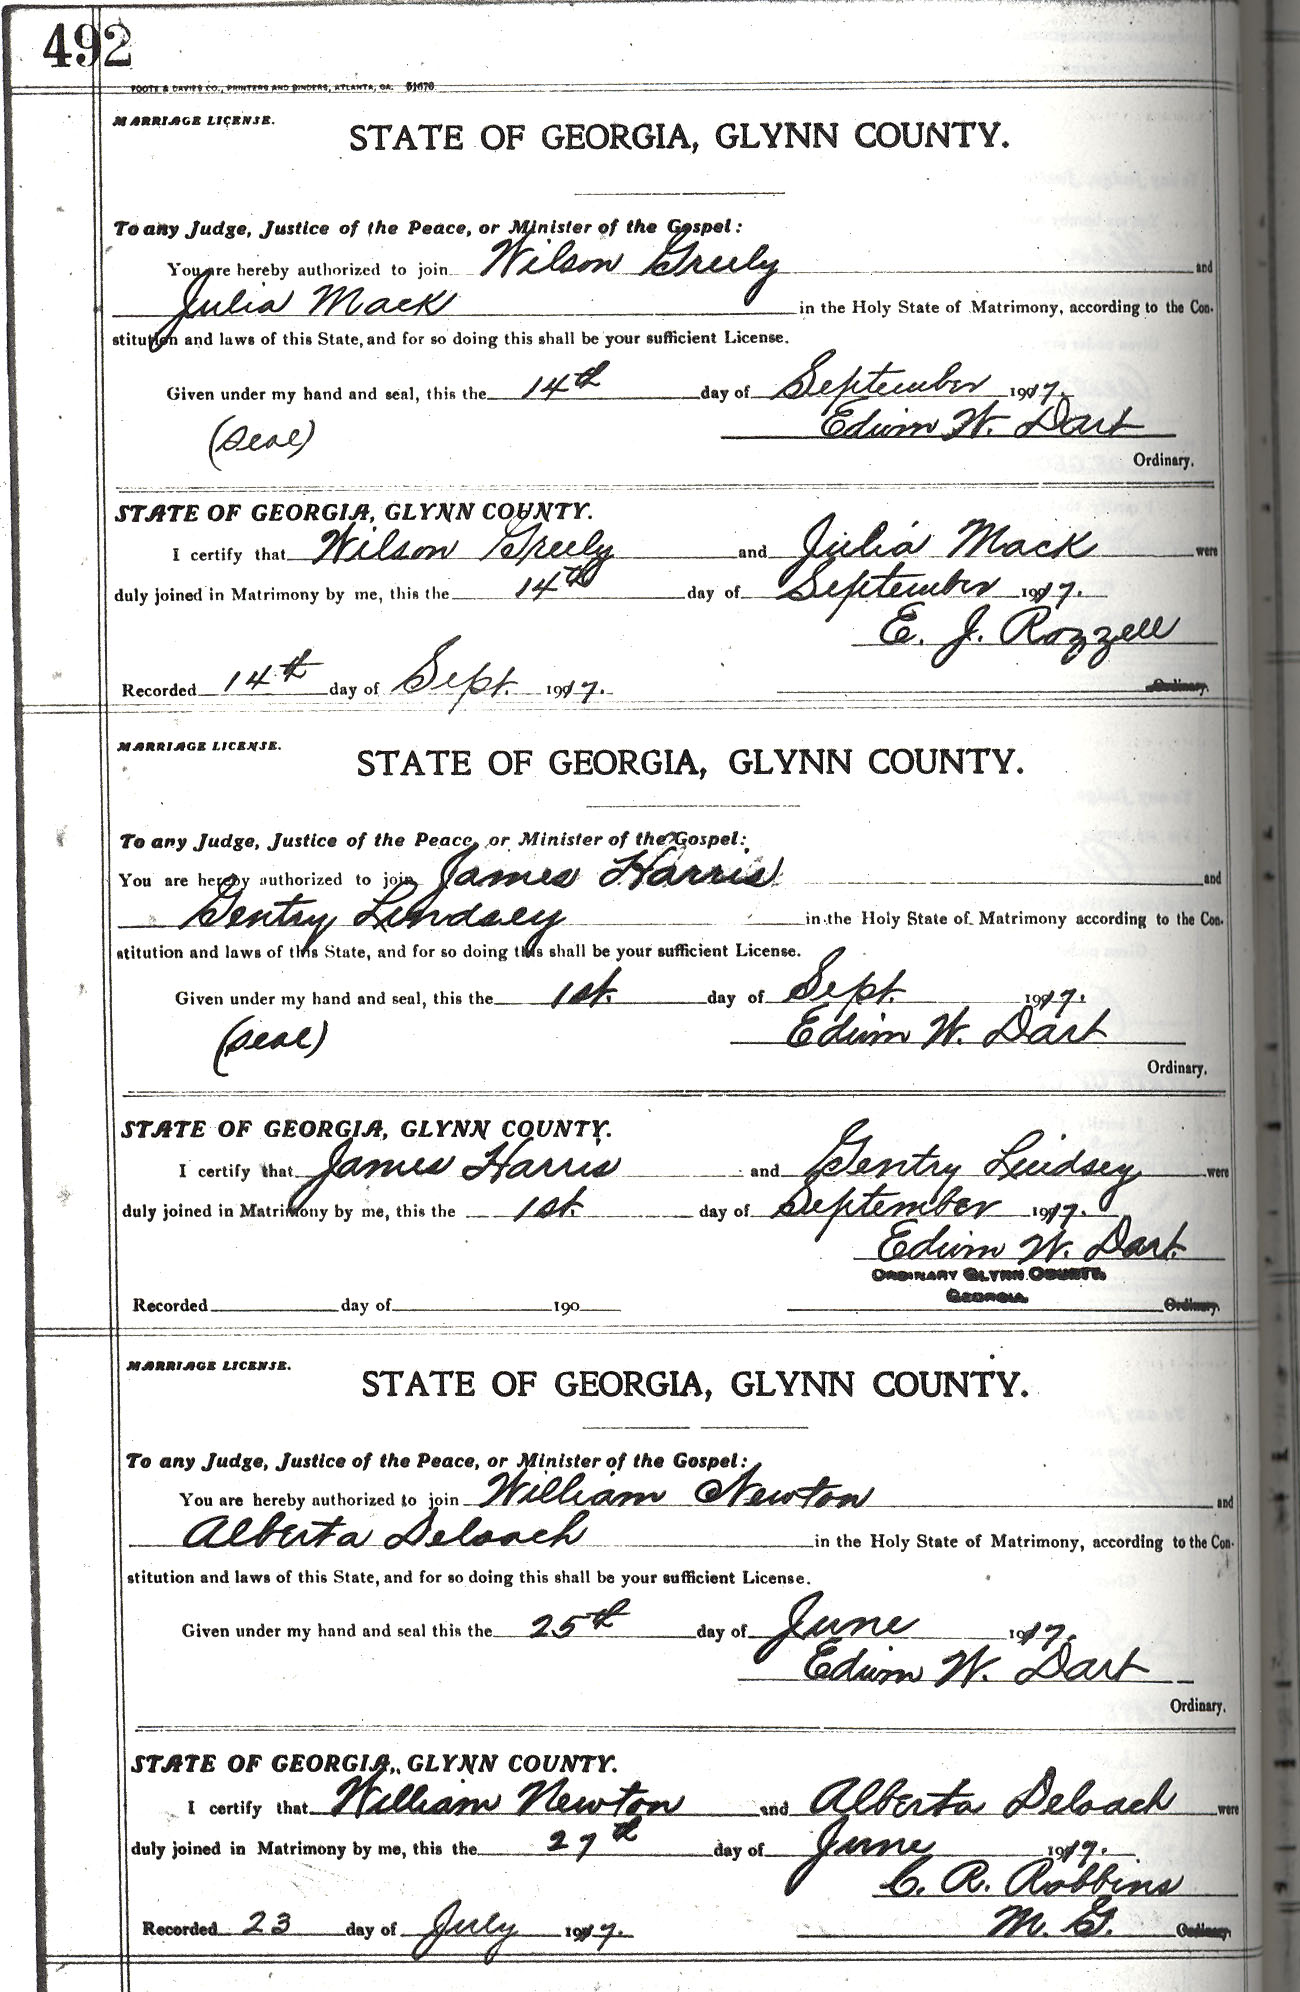 492
FOOTE & DAVIES CO., PRINTERS AND BINDERS, ATLANTA, GA. 51676
MARRIAGE LICENSE.
STATE OF GEORGIA, GLYNN COUNTY.
To any Judge, Justice of the Peace, or Minister of the Gospel:
You are hereby authorized to join Wilson Greely and
Julia Mack in the Holy State of Matrimony, according to the Con-
stitution and laws of this State, and for so doing this shall be your sufficient License.
Given under my hand and seal, this the 14th day of September 1917.
(seal) Edwin W. Dart
Ordinary.
STATE OF GEORGIA, GLYNN COUNTY.
I certify that Wilson Greely and Julia Mack were
duly joined in Matrimony by me, this the 14th day of September 1917.
E. J. Rozzell
Recorded 14th day of Sept. 1917. Ordinary.
MARRIAGE LICENSE.
STATE OF GEORGIA, GLYNN COUNTY.
To any Judge, Justice of the Peace, or Minister of the Gospel:
You are hereby authorized to join James Harris and
Gentry Lindsey in the Holy State of Matrimony according to the Con-
stitution and laws of this State, and for so doing this shall be your sufficient License.
Given under my hand and seal, this the 1st. day of Sept. 1917.
(seal) Edwin W. Dart
Ordinary.
STATE OF GEORGIA, GLYNN COUNTY.
I certify that James Harris and Gentry Lindsey were
duly joined in Matrimony by me, this the 1st. day of September 1917.
Edwin W. Dart.
ORDINARY GLYNN COUNTY,
GEORGIA.
Recorded day of 190 Ordinary.
MARRIAGE LICENSE.
STATE OF GEORGIA, GLYNN COUNTY.
To any Judge, Justice of the Peace, or Minister of the Gospel:
You are hereby authorized to join William Newton and
Alberta Deloach in the Holy State of Matrimony, according to the Con-
stitution and laws of this State, and for so doing this shall be your sufficient License.
Given under my hand and seal this the 25th day of June 1917.
Edwin W. Dart
Ordinary.
STATE OF GEORGIA, GLYNN COUNTY.
I certify that William Newton and Alberta Deloach were
duly joined in Matrimony by me, this the 27th day of June 1917.
C. R. Robbins
Recorded 23 day of July 1917. M. G. Ordinary.